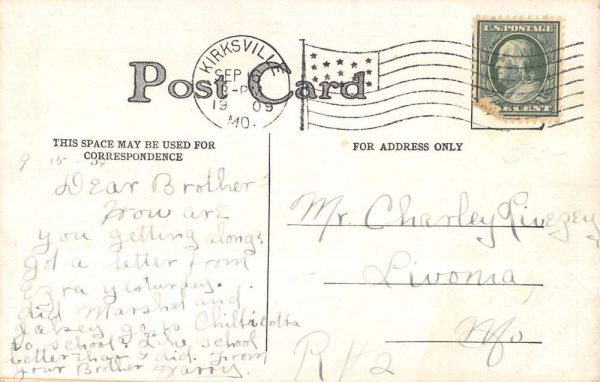 KIRKSVILLE
SEP
1909
MO.
U.S. POSTAGE
1 CENT
Post Card
THIS SPACE MAY BE USED FOR
CORRESPONDENCE
FOR ADDRESS ONLY
9-15-
Dear Brother
How are
you getting along?
got a letter from
Ezra yesterday.
did Marshal and
go to Chillicotha
to school? I like school
better than I did. From
your Brother Harry.
Mr. Charley Livezey
Livonia,
Mo
R#2